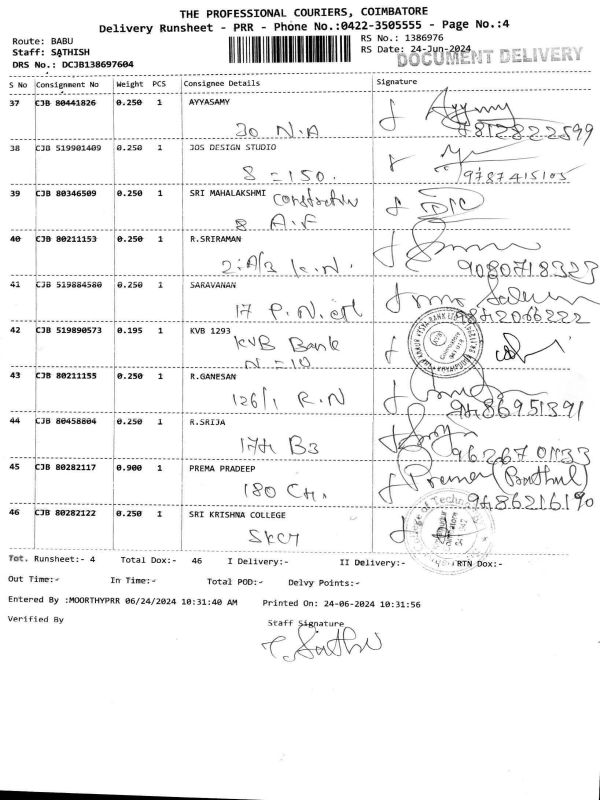 THE PROFESSIONAL COURIERS, COIMBATORE
Delivery Runsheet - PRR - Phone No.:0422-3505555 - Page No.:4
Route: BABU
RS No.: 1386976
Staff: SATHISH
RS Date: 24-Jun-2024
DOCUMENT DELIVERY
DRS No.: DCJB138697604
S No Consignment No Weight PCS Consignee Details Signature
37 CJB 80441826 0.250 1 AYYASAMY
30 N.A
9812822599
38 CJB 519901409 0.250 1 JOS DESIGN STUDIO
8 = 150.
9787415105
39 CJB 80346509 0.250 1 SRI MAHALAKSHMI Construction
8 A.F
40 CJB 80211153 0.250 1 R.SRIRAMAN
2: A/3 K.N.
9080718323
41 CJB 519884580 0.250 1 SARAVANAN
17 P.N.
9842066222
42 CJB 519890573 0.195 1 KVB 1293
KVB Bank
N = 10
43 CJB 80211155 0.250 1 R.GANESAN
126/1 R.N
9486951391
44 CJB 80458804 0.250 1 R.SRIJA
174 B3
9626701133
45 CJB 80282117 0.900 1 PREMA PRADEEP
Prema
180 CH.
9486216190
46 CJB 80282122 0.250 1 SRI KRISHNA COLLEGE
SKCT
Tot. Runsheet:- 4 Total Dox:- 46 I Delivery:- II Delivery:- RTN Dox:-
Out Time:- In Time:- Total POD:- Delvy Points:-
Entered By :MOORTHYPRR 06/24/2024 10:31:40 AM Printed On: 24-06-2024 10:31:56
Verified By Staff Signature